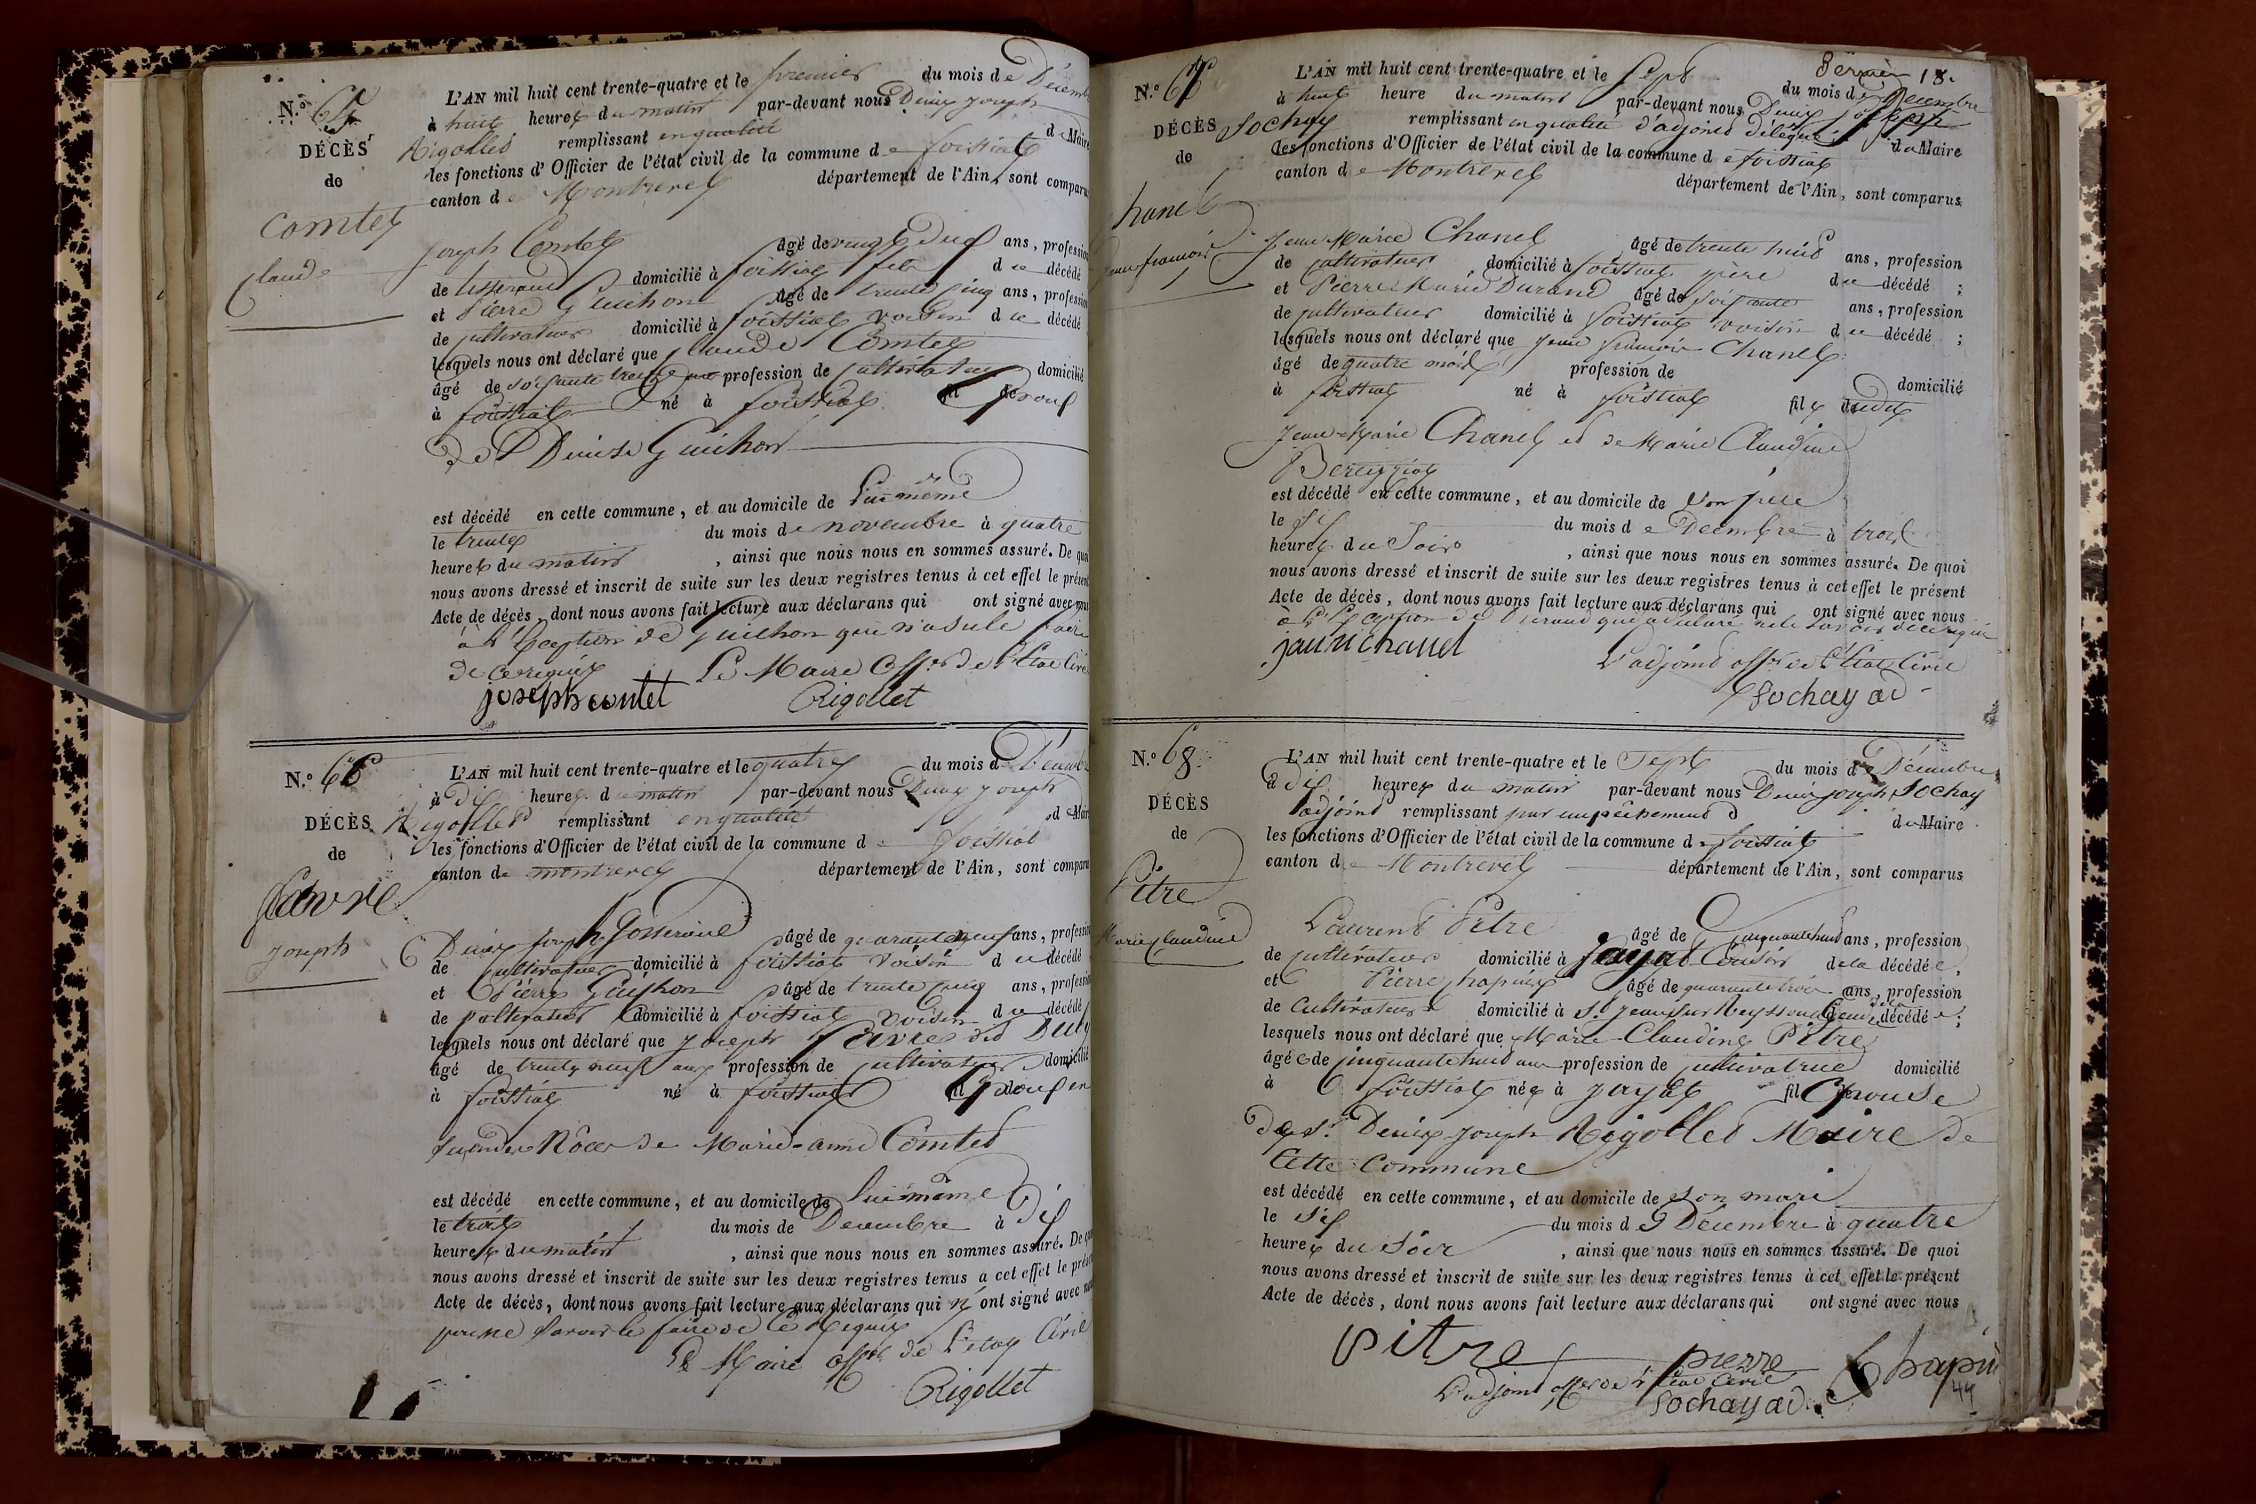 N.o 65
DÉCÈS
de
Comtet
Claude
L'AN mil huit cent trente-quatre et le premier du mois de Décembre
à huit heures du matin par-devant nous Denis Joseph
Rigollet remplissant en qualité de Maire
les fonctions d'Officier de l'état civil de la commune de foissiat
canton de Montrevel département de l'Ain, sont comparus
Joseph Comtet âgé de vingt ans, profession
de tisserand domicilié à foissiat fils du décédé
et Pierre Guichon âgé de trente cinq ans, profession
de cultivateur domicilié à foissiat voisin du décédé
lesquels nous ont déclaré que Claude Comtet
âgé de soixante treize ans profession de cultivateur domicilié
à foissiat né à foissiat Epoux
de Denise Guichon
est décédé en cette commune, et au domicile de lui même
le trente du mois de novembre à quatre
heures du matin, ainsi que nous nous en sommes assuré. De quoi
nous avons dressé et inscrit de suite sur les deux registres tenus à cet effet le présent
Acte de décès, dont nous avons fait lecture aux déclarans qui ont signé avec nous
à l'Exception de Guichon qui n'a su le faire
de ce requis Le Maire Off.er de l'Etat Civil
joseph comtet Rigollet
N.o 66
DÉCÈS
de
favre
Joseph
L'AN mil huit cent trente-quatre et le quatre du mois de Décembre
à dix heures du matin par-devant nous Denis Joseph
Rigollet remplissant en qualité de Maire
les fonctions d'Officier de l'état civil de la commune de foissiat
canton de montrevel département de l'Ain, sont comparus
Denis Joseph âgé de quarante neuf ans, profession
de cultivateur domicilié à foissiat voisin du décédé
et Pierre Guichon âgé de trente cinq ans, profession
de cultivateur domicilié à foissiat voisin du décédé
lesquels nous ont déclaré que Joseph favre dit
âgé de trente neuf ans profession de cultivateur domicilié
à foissiat né à foissiat Epoux en
secondes Nôces de Marie-anne Comtet
est décédé en cette commune, et au domicile de lui même
le trois du mois de Decembre à dix
heures du matin, ainsi que nous nous en sommes assuré. De quoi
nous avons dressé et inscrit de suite sur les deux registres tenus à cet effet le présent
Acte de décès, dont nous avons fait lecture aux déclarans qui n'ont signé avec nous
pour ne savoir le faire de ce Requis
Le Maire off.er de l'etat Civil
Rigollet
Dernier
N.o 67
DÉCÈS
de
Chanel
Jean françois
L'AN mil huit cent trente-quatre et le sept du mois de Décembre
à huit heure du matin par-devant nous Denis Joseph
Sochay remplissant en qualité d'adjoint délégué du Maire
les fonctions d'Officier de l'état civil de la commune de foissiat
canton de Montrevel département de l'Ain, sont comparus
Jean Marie Chanel âgé de trente huit ans, profession
de cultivateur domicilié à foissiat père du décédé ;
et Pierre Marie Durand âgé de soixante ans, profession
de cultivateur domicilié à foissiat voisin du décédé ;
lesquels nous ont déclaré que Jean françois Chanel
âgé de quatre mois profession de domicilié
à foissiat né à foissiat fils dudit
Jean-Marie Chanel et de Marie Claudine
est décédé en cette commune, et au domicile de son père
le six du mois de Décembre à trois
heures du Soir, ainsi que nous nous en sommes assuré. De quoi
nous avons dressé et inscrit de suite sur les deux registres tenus à cet effet le présent
Acte de décès, dont nous avons fait lecture aux déclarans qui ont signé avec nous
à l'Exception de Durand qui a déclaré ne le savoir de ce requis
jan m chanel L'adjoint off.er de l'Etat Civil
Sochay ad
N.o 68
DÉCÈS
de
Pitre
Marie Claudine
L'AN mil huit cent trente-quatre et le Sept du mois de Décembre
à dix heures du matin par-devant nous Denis Joseph Sochay
adjoint remplissant par empêchement du Maire
les fonctions d'Officier de l'état civil de la commune de foissiat
canton de Montrevel département de l'Ain, sont comparus
Laurent Pitre âgé de Cinquante huit ans, profession
de cultivateur domicilié à Jayat Cousin de la décédée,
et Pierre âgé de quarante trois ans, profession
de Cultivateur domicilié à St. Jean sur Reyssouze décédée ;
lesquels nous ont déclaré que Marie-Claudine Pitre
âgée de cinquante huit ans profession de cultivatrice domicilié
à foissiat née à Jayat Epouse
de Sr. Denis-Joseph Rigollet Maire de
Cette Commune
est décédé en cette commune, et au domicile de son mari
le six du mois de Décembre à quatre
heures du Soir, ainsi que nous nous en sommes assuré. De quoi
nous avons dressé et inscrit de suite sur les deux registres tenus à cet effet le présent
Acte de décès, dont nous avons fait lecture aux déclarans qui ont signé avec nous
pitre pierre Chapui
L'adjoint off.er de l'Etat Civil
Sochay ad.